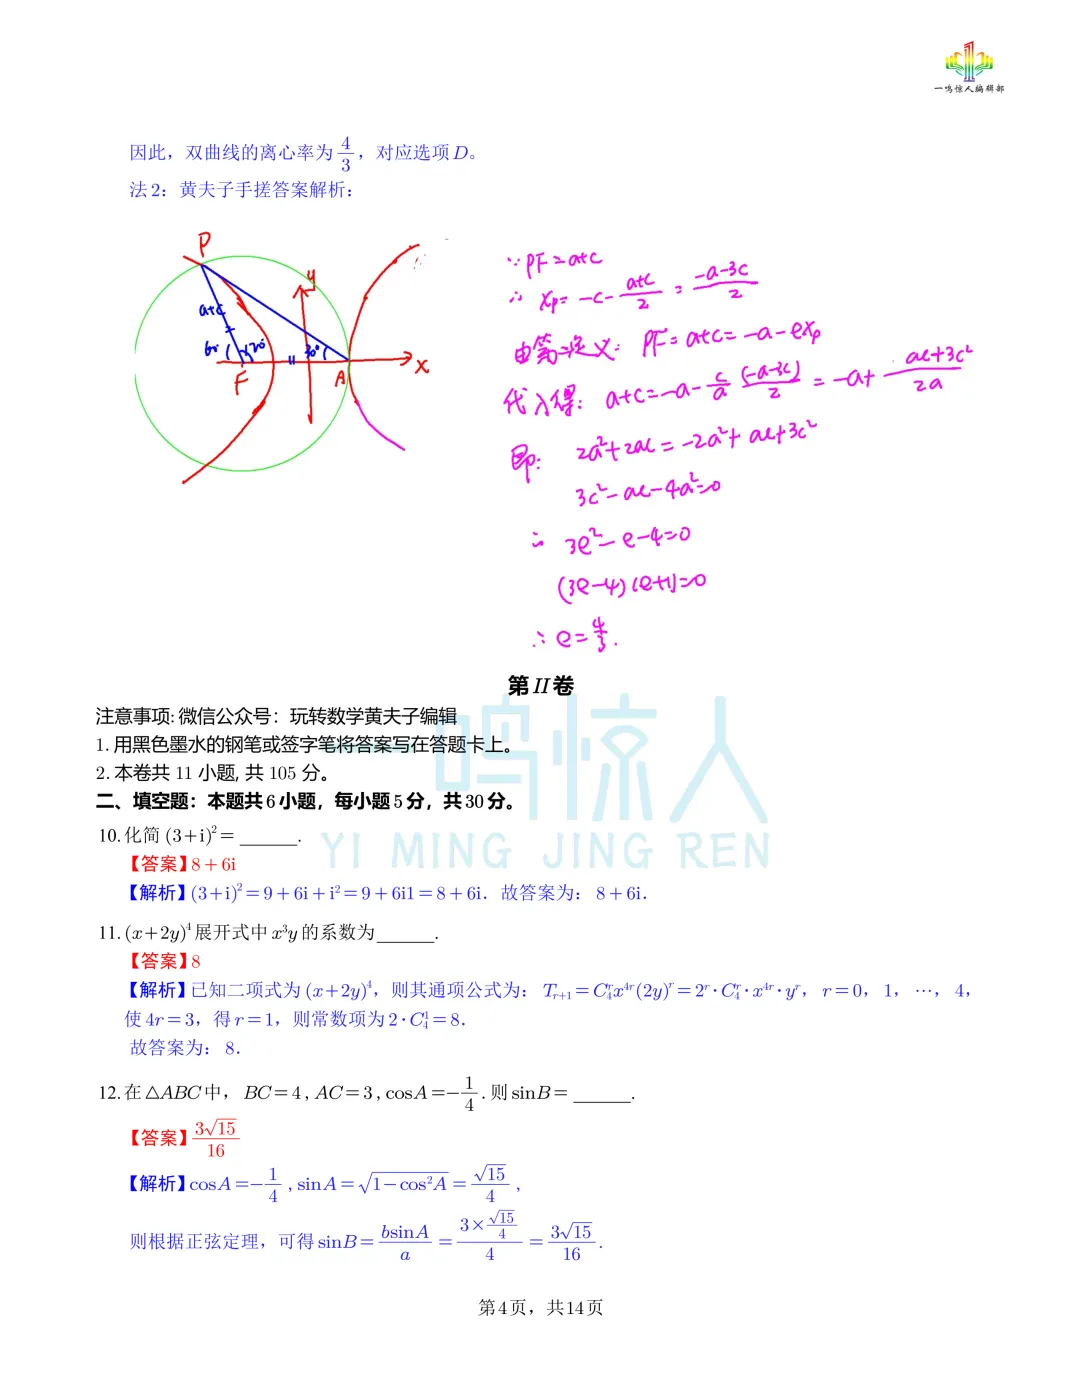 一鸣惊人编辑部
因此，双曲线的离心率为 4/3，对应选项D。
法2：黄夫子手搓答案解析：
P
y
a+c
60° 120° 30°
F A x
∵ PF=a+c
∴ xₚ= -c- (a+c)/2 = (-a-3c)/2
由第二定义: PF=a+c=-a-exₚ
代入得: a+c=-a- c/a (-a-3c)/2 = -a+ (ac+3c²)/2a
即: 2a²+2ac=-2a²+ac+3c²
3c²-ac-4a²=0
∴ 3e²-e-4=0
(3e-4)(e+1)=0
∴ e=4/3.
第II卷
注意事项: 微信公众号：玩转数学黄夫子编辑
1. 用黑色墨水的钢笔或签字笔将答案写在答题卡上。
2. 本卷共 11 小题, 共 105 分。
二、填空题：本题共6小题，每小题5分，共30分。
一鸣惊人
YI MING JING REN
10. 化简 (3+i)²= ______.
【答案】8+6i
【解析】(3+i)²=9+6i+i²=9+6i1=8+6i．故答案为：8+6i．
11. (x+2y)⁴展开式中x³y的系数为______.
【答案】8
【解析】已知二项式为 (x+2y)⁴，则其通项公式为：Tᵣ₊₁=C₄ʳx⁴ʳ(2y)ʳ=2ʳ·C₄ʳ·x⁴ʳ·yʳ，r=0，1，…，4，
使4r=3，得r=1，则常数项为2·C₄¹=8．
故答案为：8．
12. 在△ABC中，BC=4, AC=3, cosA=-1/4. 则sinB= ______.
【答案】3√15/16
【解析】cosA=-1/4, sinA=√(1-cos²A)=√15/4，
则根据正弦定理，可得sinB= bsinA/a = (3×√15/4)/4 = 3√15/16.
第4页，共14页